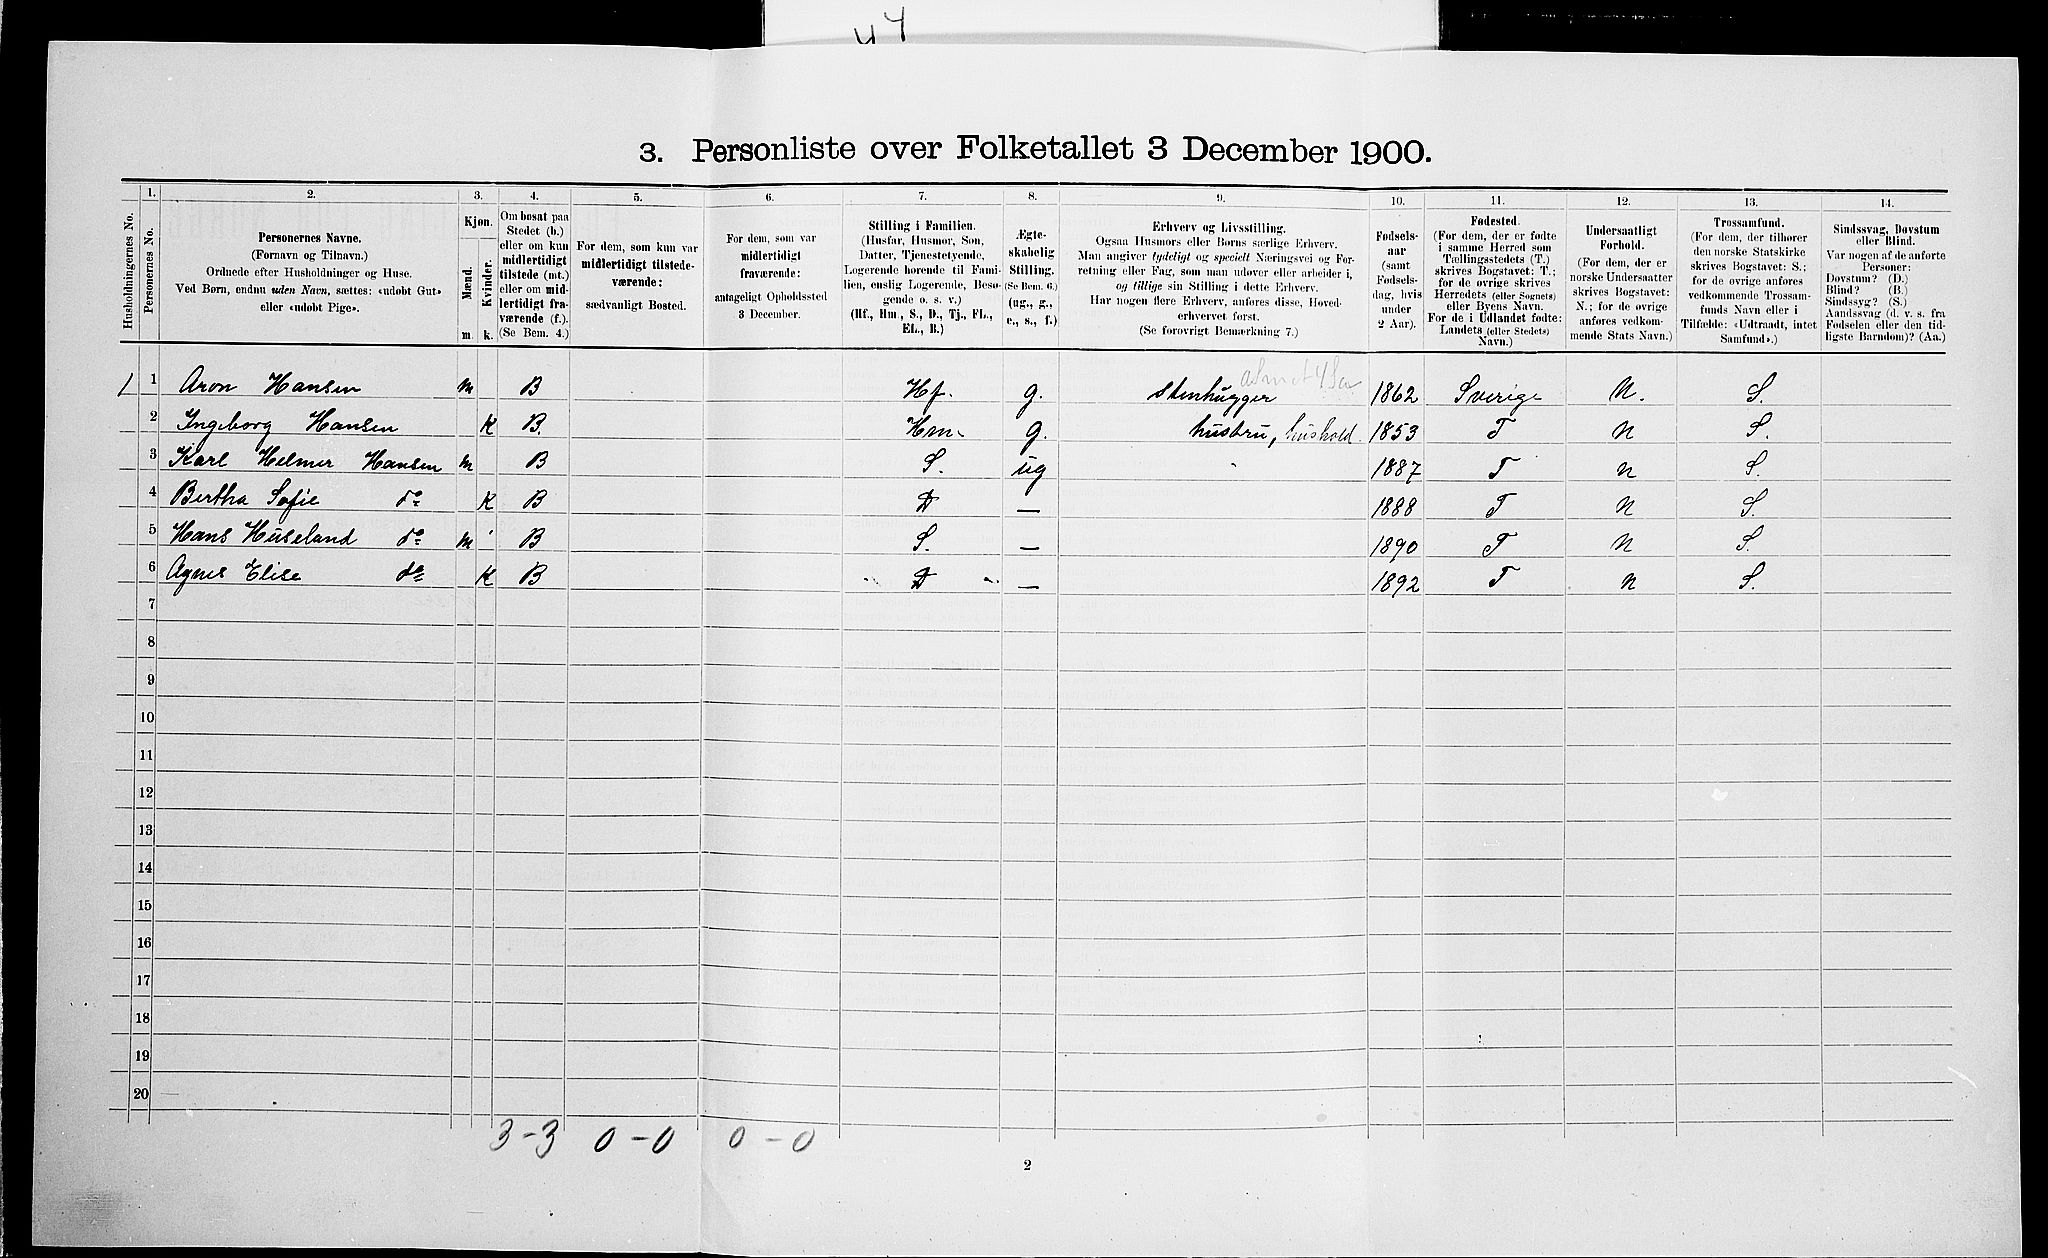 44
3. Personliste over Folketallet 3 December 1900.
Husholdningernes No.
1.
Personernes No.
2.
Personernes Navne.
(Fornavn og Tilnavn.)
Ordnede efter Husholdninger og Huse.
Ved Børn, endnu uden Navn, sættes: «udobt Gut»
eller «udobt Pige».
3.
Kjøn.
Mænd.
Kvinder.
m. k.
4.
Om bosat paa
Stedet (b.)
eller om kun
midlertidigt
tilstede (mt.)
eller om mid-
lertidigt fra-
værende (f.).
(Se Bem. 4.)
5.
For dem, som kun var
midlertidigt tilstede-
værende:
sædvanligt Bosted.
6.
For dem, som var
midlertidigt
fraværende:
antageligt Opholdssted
3 December.
7.
Stilling i Familien.
(Husfar, Husmor, Søn,
Datter, Tjenestetyende,
Logerende hørende til Fami-
lien, enslig Logerende, Besø-
gende o. s. v.)
(Hf., Hm., S., D., Tj., FL.,
EL., B.)
8.
Ægte-
skabelig
Stilling.
(Se Bem. 6.)
(ug., g.,
e., s., f.)
9.
Erhverv og Livsstilling.
Ogsaa Husmors eller Børns særlige Erhverv.
Man angiver tydeligt og specielt Næringsvei og For-
retning eller Fag, som man udøver eller arbeider i,
og tillige sin Stilling i dette Erhverv.
Har nogen flere Erhverv, anføres disse, Hoved-
erhvervet først.
(Se forøvrigt Bemærkning 7.)
10.
Fødsels-
aar
(samt
Fødsels-
dag, hvis
under
2 Aar).
11.
Fødested.
(For dem, der er fødte
i samme Herred som
Tællingsstedets (T.)
skrives Bogstavet: T.;
for de øvrige skrives
Herredets (eller Sognets)
eller Byens Navn.
For de i Udlandet fødte:
Landets (eller Stedets)
Navn.)
12.
Undersaatligt
Forhold.
(For dem, der er
norske Undersaatter
skrives Bogstavet:
N.; for de øvrige
anføres vedkom-
mende Stats Navn.)
13.
Trossamfund.
(For dem, der tilhører
den norske Statskirke
skrives Bogstavet: S.;
for de øvrige anføres
vedkommende Trossam-
funds Navn eller i
Tilfælde: «Udtraadt, intet
Samfund».)
14.
Sindssvag, Døvstum
eller Blind.
Var nogen af de anførte
Personer:
Døvstum? (D.)
Blind? (B.)
Sindssyg? (S.)
Aandssvag (d. v. s. fra
Fødselen eller den tid-
ligste Barndom)? (Aa.)
1 1 Aron Hansen m B Hf. g. Stenhugger 1862 Sverige N. S.
2 Ingeborg Hansen K B. Hm. g. hustru, hushold. 1853 T N S.
3 Karl Helmer Hansen m B S. ug " 1887 T N S.
4 Bertha Sofie do K B D — 1888 T N S.
5 Hans Huseland do m B S. — 1890 T N S.
6 Agnes Elise do K B " D " — 1892 T N S.
7
8
9
10
11
12
13
14
15
16
17
18
19
20
3-3 0-0 0-0
2